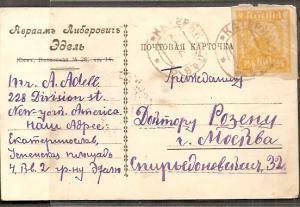 Авраам Либорович
Эдель
ПОЧТОВАЯ КАРТОЧКА
Mr. A. Adell
228 Division st.
New-york. America
Наш Адрес:
Екатеринослав,
Успенская площадь
4, кв. 2 гр-ну Эделю
Гражданину
Доктору Розену
г. Москва
Спиридоновская, 32